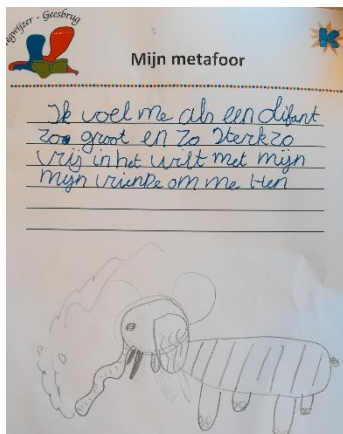 egwijzer - Geesbrug
K
Mijn metafoor
Ik voel me als een olifant
zo groot en zo sterk zo
vrij in het wilt met mijn
mijn vrienke om me hen